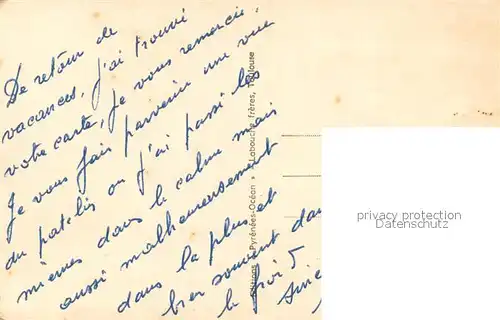 De retour de
vacances, j'ai trouvé
votre carte, je vous remercie.
Je vous fais parvenir une vue
du patelin ou j'ai passé les
miennes dans le calme mais
aussi malheureusement
dans la pluie et
bien souvent dans
le froid
Pyrénées-Océan • Labouche frères, Toulouse
privacy protection
Datenschutz